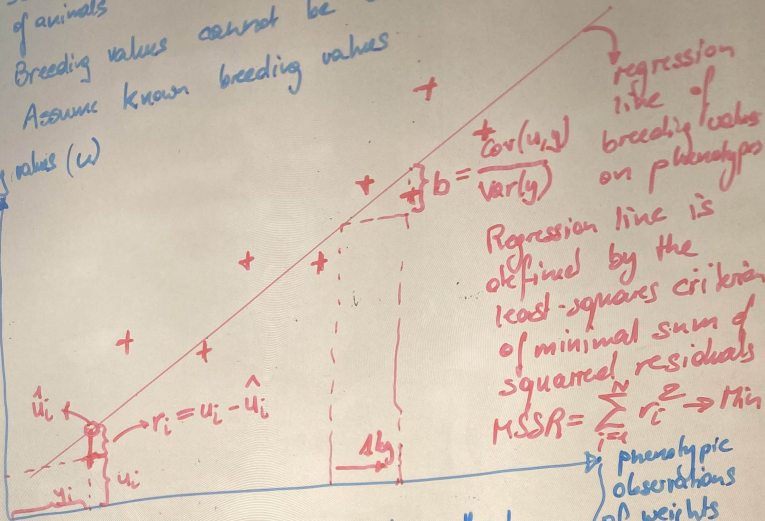 of animals
Breeding values cannot be
Assume known breeding values
values (u)
regression
line of
breeding values
on phenotypes
b = cov(u,y)
var(y)
Regression line is
defined by the
least-squares criterion
of minimal sum of
squared residuals
MSSR = ∑ᵢ₌₁ᴺ rᵢ² → Min
ûᵢ
rᵢ = uᵢ - ûᵢ
uᵢ
yᵢ
1kg
phenotypic
observations
of weights